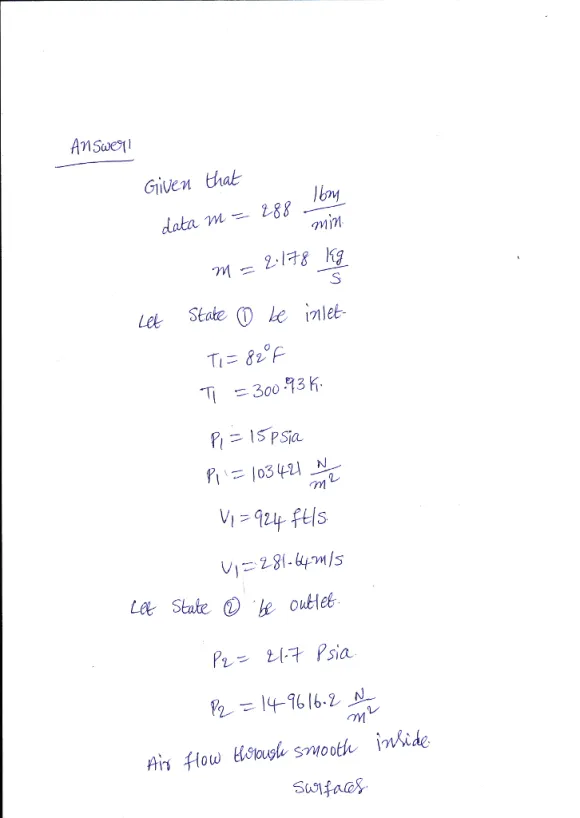 Answer1
Given that
data m = 288 lbm/min
m = 2.178 kg/s
Let State ① be inlet-
T1 = 82°F
T1 = 300.93 K.
P1 = 15 Psia
P1 = 103421 N/m²
V1 = 924 ft/s
V1 = 281.64 m/s
Let State ② be outlet.
P2 = 21.7 Psia
P2 = 149616.2 N/m²
Air flow through smooth inside
Surfaces